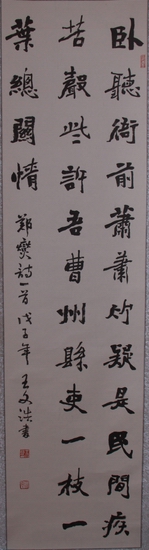 卧聽衙前蕭蕭竹疑是民間疾
苦聲些許吾曹州縣吏一枝一
葉總關情
鄭燮詩一首戊子年王文書